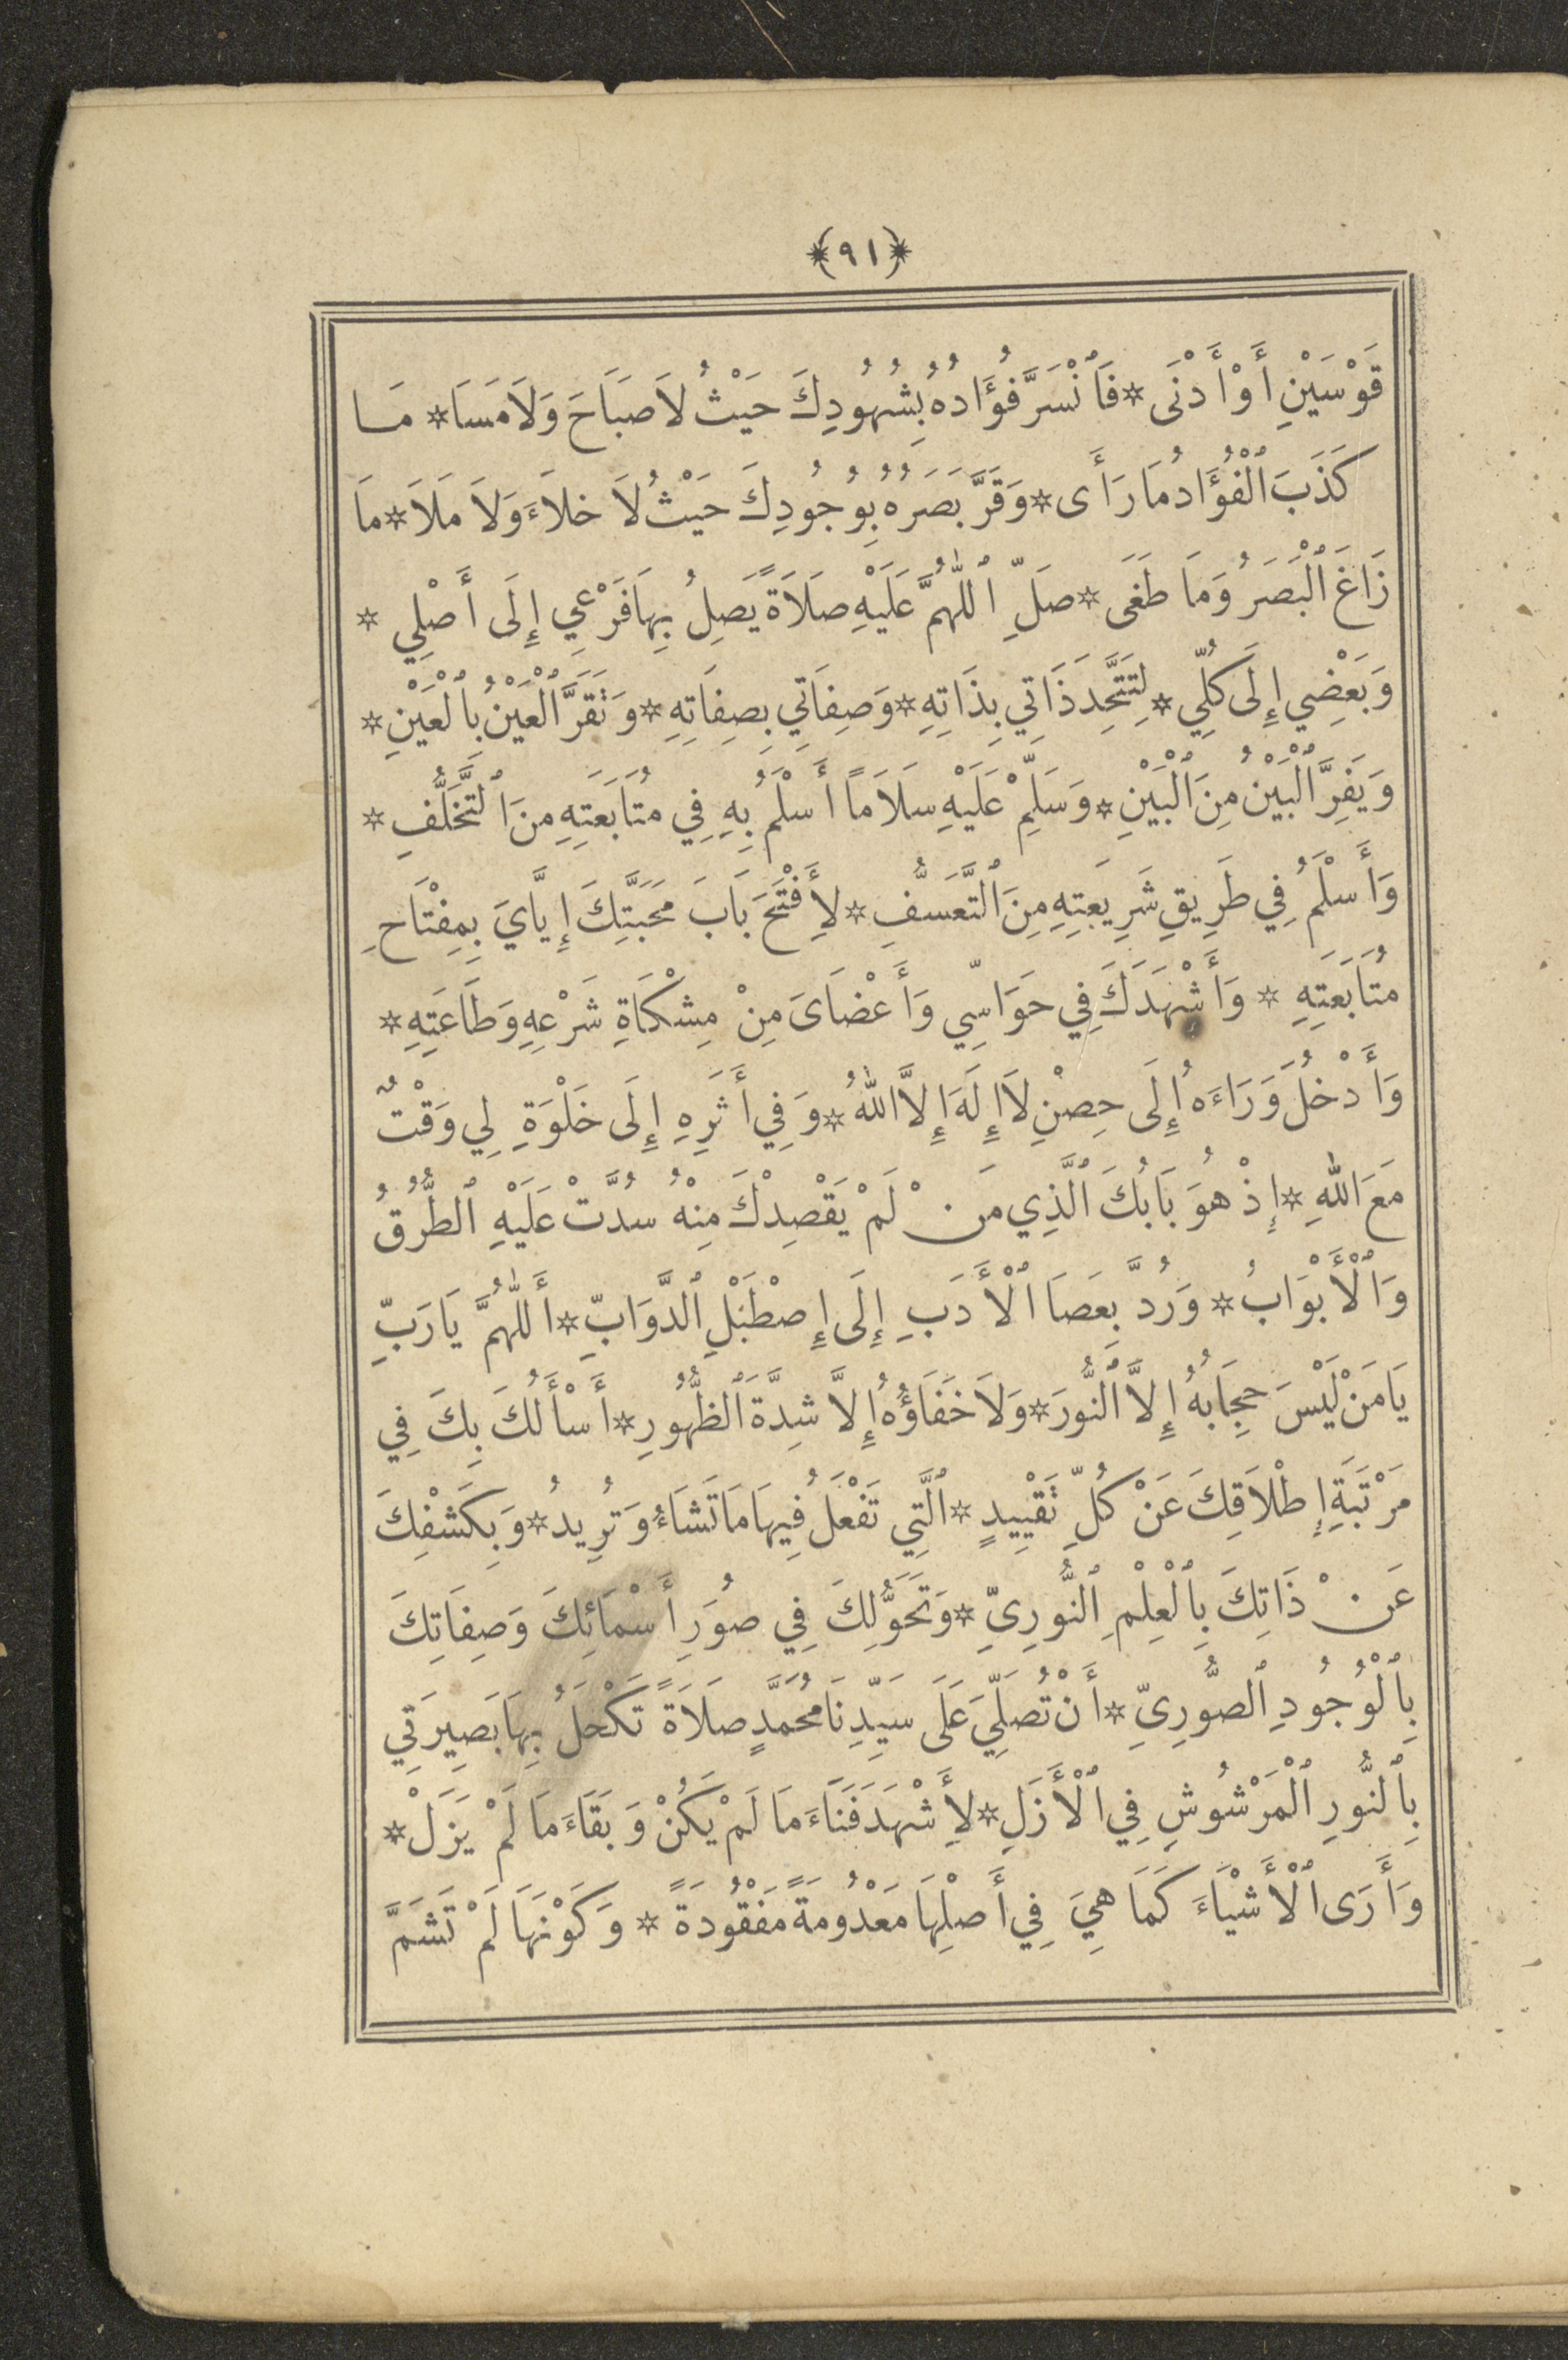 ﴿٩١﴾
قَوْسَيْنِ أَوْ أَدْنَى * فَٱنْسَرَّ فُؤَادُهُ بِشُهُودِكَ حَيْثُ لَا صَبَاحَ وَلَا مَسَا * مَا
كَذَبَ ٱلْفُؤَادُ مَا رَأَى * وَقَرَّ بَصَرُهُ بِوُجُودِكَ حَيْثُ لَا خَلَاءَ وَلَا مَلَا * مَا
زَاغَ ٱلْبَصَرُ وَمَا طَغَى * صَلِّ ٱللّٰهُمَّ عَلَيْهِ صَلَاةً يَصِلُ بِهَا فَرْعِي إِلَى أَصْلِي *
وَبَعْضِي إِلَى كُلِّي * لِتَتَّحِدَ ذَاتِي بِذَاتِهِ * وَصِفَاتِي بِصِفَاتِهِ * وَتَقَرَّ ٱلْعَيْنُ بِٱلْعَيْنِ *
وَيَفِرَّ ٱلْبَيْنُ مِنَ ٱلْبَيْنِ * وَسَلِّمْ عَلَيْهِ سَلَامًا أَسْلَمُ بِهِ فِي مُتَابَعَتِهِ مِنَ ٱلتَّخَلُّفِ *
وَأَسْلَمُ فِي طَرِيقِ شَرِيعَتِهِ مِنَ ٱلتَّعَسُّفِ * لِأَفْتَحَ بَابَ مَحَبَّتِكَ إِيَّايَ بِمِفْتَاحِ
مُتَابَعَتِهِ * وَأَشْهَدَكَ فِي حَوَاسِّي وَأَعْضَاىَ مِنْ مِشْكَاةِ شَرْعِهِ وَطَاعَتِهِ *
وَأَدْخُلَ وَرَاءَهُ إِلَى حِصْنِ لَا إِلَهَ إِلَّا اللّٰهُ * وَفِي أَثَرِهِ إِلَى خَلْوَةِ لِي وَقْتٌ
مَعَ اللّٰهِ * إِذْ هُوَ بَابُكَ ٱلَّذِي مَنْ لَمْ يَقْصِدْكَ مِنْهُ سُدَّتْ عَلَيْهِ ٱلطُّرُقُ
وَٱلْأَبْوَابُ * وَرُدَّ بِعَصَا ٱلْأَدَبِ إِلَى إِصْطَبْلِ ٱلدَّوَابِّ * أَللّٰهُمَّ يَا رَبِّ
يَا مَنْ لَيْسَ حِجَابُهُ إِلَّا ٱلنُّورَ * وَلَا خَفَاؤُهُ إِلَّا شِدَّةَ ٱلظُّهُورِ * أَسْأَلُكَ بِكَ فِي
مَرْتَبَةِ إِطْلَاقِكَ عَنْ كُلِّ تَقْيِيدٍ * ٱلَّتِي تَفْعَلُ فِيهَا مَا تَشَاءُ وَتُرِيدُ * وَبِكَشْفِكَ
عَنْ ذَاتِكَ بِٱلْعِلْمِ ٱلنُّورِيِّ * وَتَحَوُّلِكَ فِي صُوَرِ أَسْمَائِكَ وَصِفَاتِكَ
بِٱلْوُجُودِ ٱلصُّورِىِّ * أَنْ تُصَلِّيَ عَلَى سَيِّدِنَا مُحَمَّدٍ صَلَاةً تَكْحَلُ بِهَا بَصِيرَتِي
بِٱلنُّورِ ٱلْمَرْشُوشِ فِي ٱلْأَزَلِ * لِأَشْهَدَ فَنَاءَ مَا لَمْ يَكُنْ وَبَقَاءَ مَا لَمْ يَزَلْ *
وَأَرَى ٱلْأَشْيَاءَ كَمَا هِيَ فِي أَصْلِهَا مَعْدُومَةً مَفْقُودَةً * وَكَوْنَهَا لَمْ تَشَمَّ